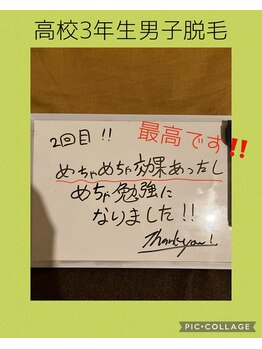 高校3年生男子脱毛
2回目!!
最高です!!
めちゃめちゃ効果あったし
めちゃ勉強に
なりました!!
Thank you!
PIC•COLLAGE